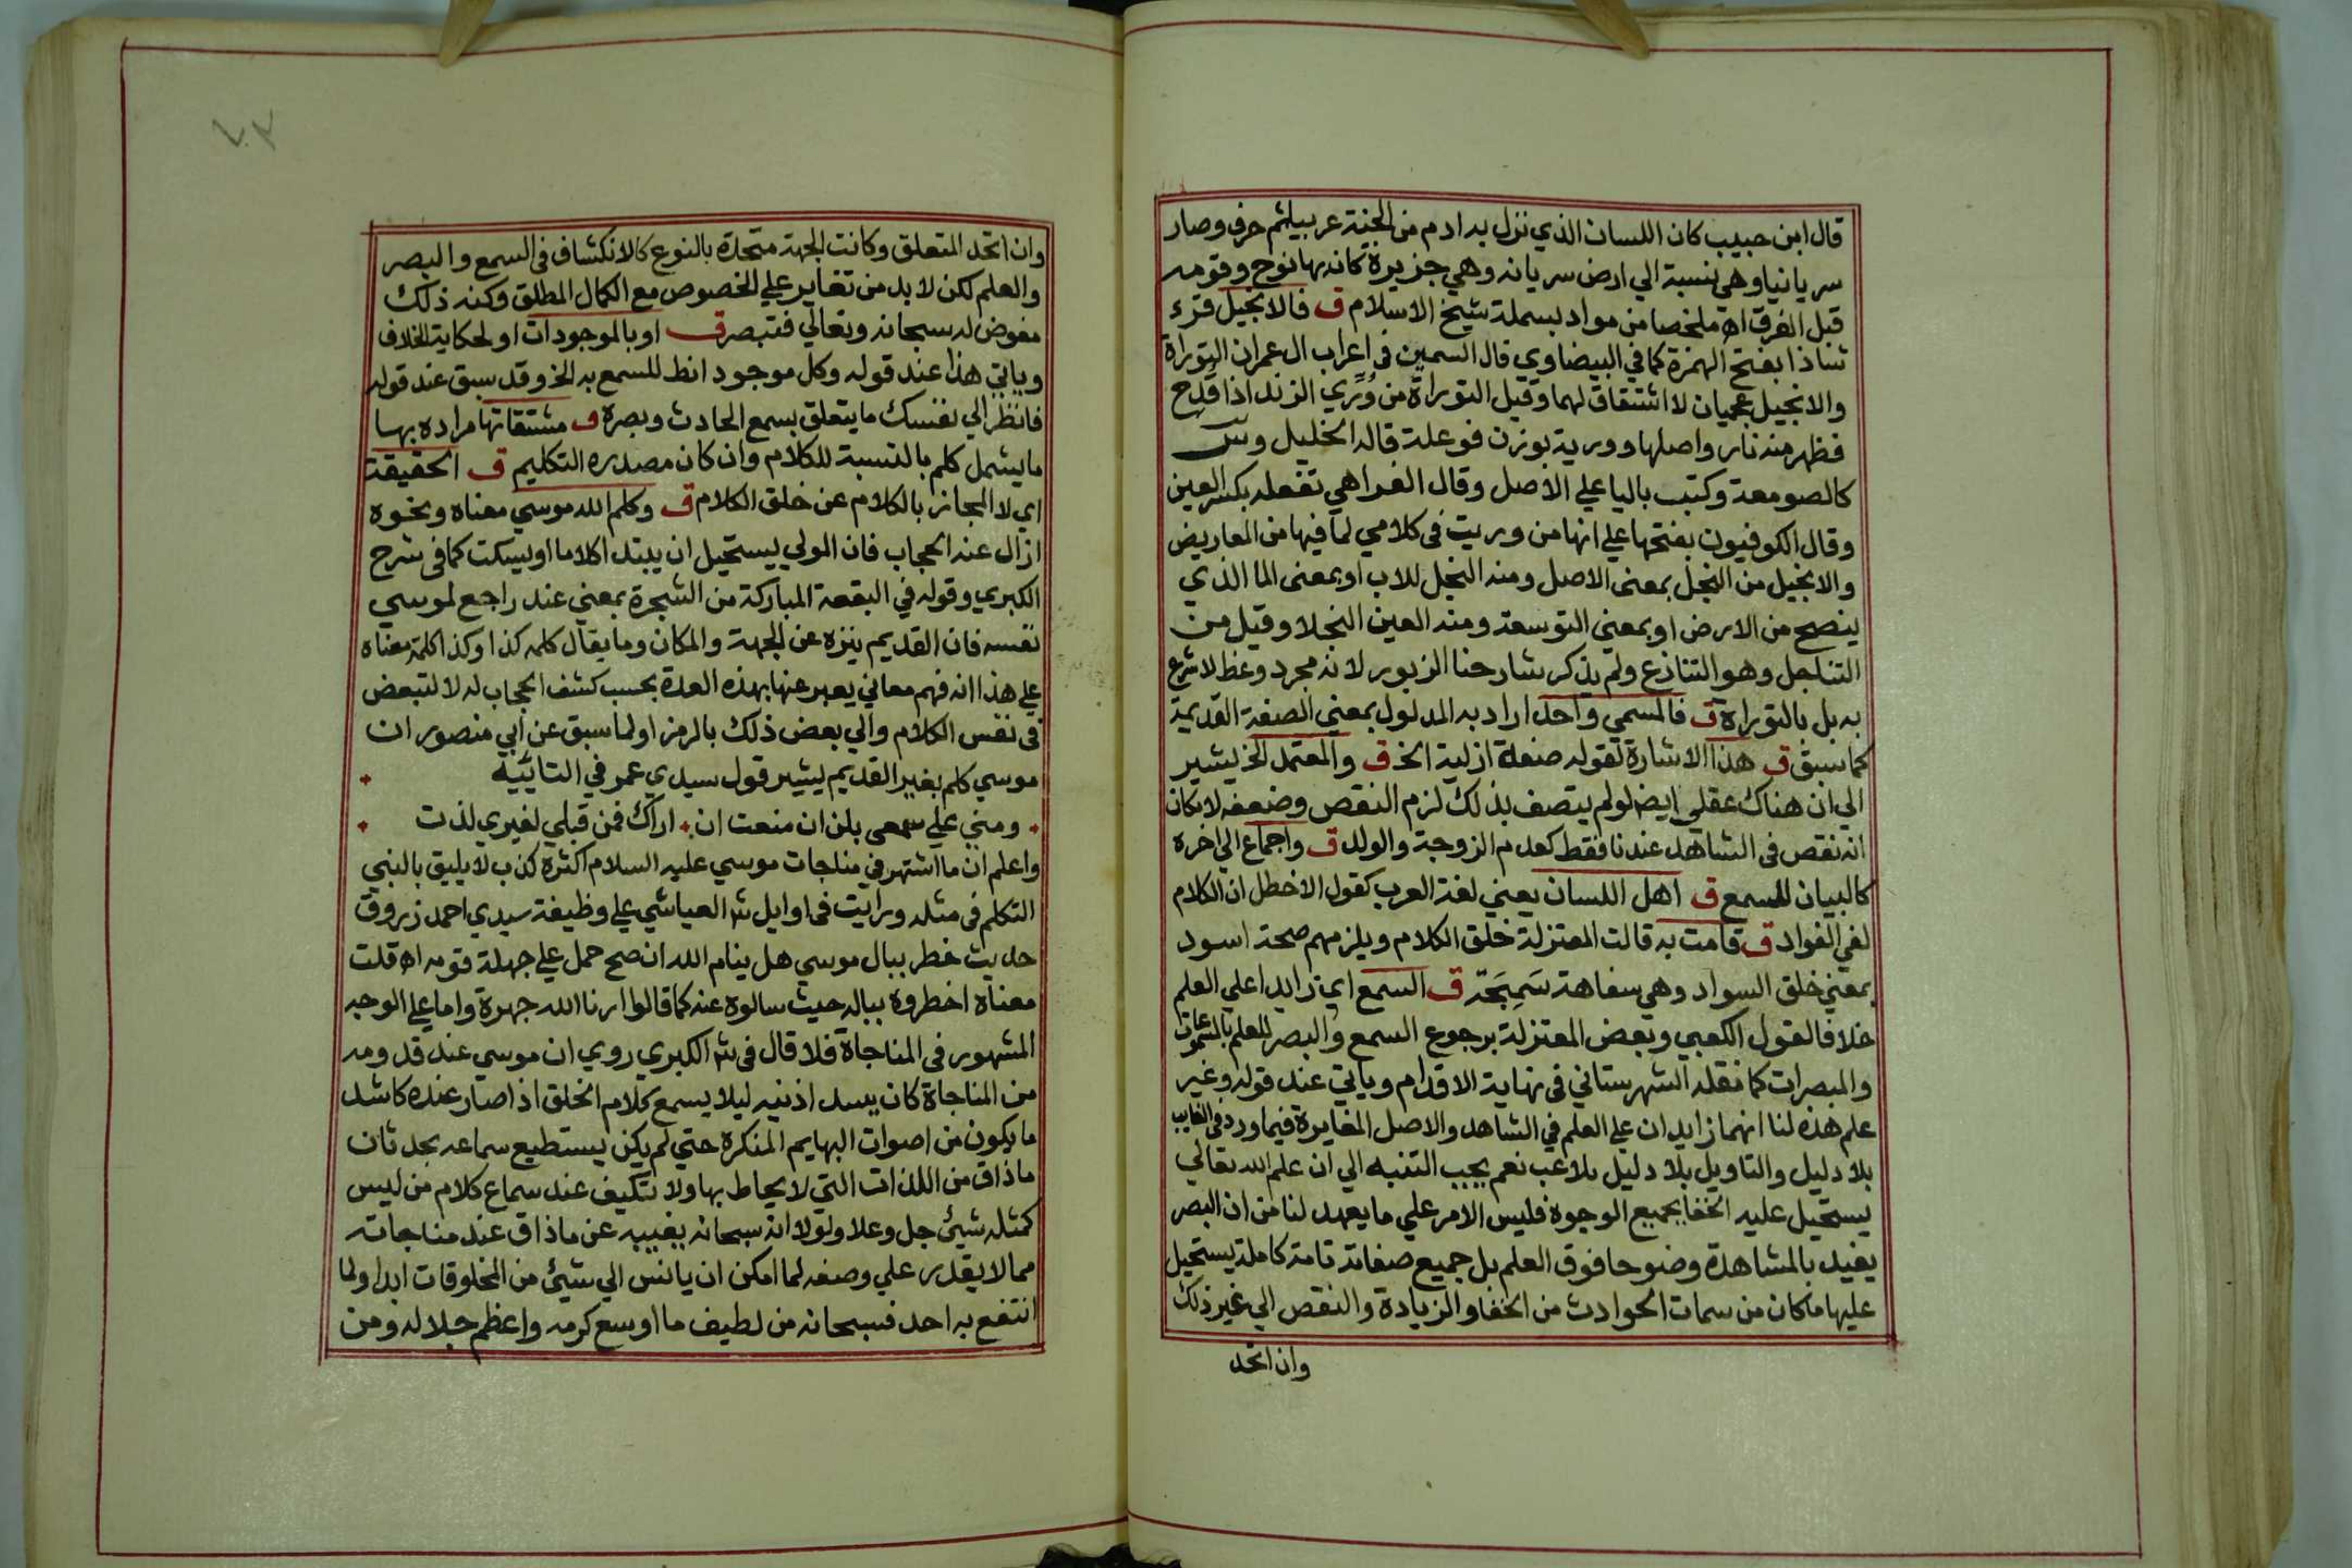 قال ابن حبيب كان اللسان الذي نزل به ادم من الجنة عربيا ثم حرف وصار
سريانيا وهي نسبة الي ارض سريانه وهي جزيرة كانه بها نوح وقومه
قبل الغرق اه ملخصا من مواد بسملة شيخ الاسلام ق فالانجيل قرء
شاذا بفتح الهمزة كما في البيضاوي قال السمين في اعراب ال عمران التوراة
والانجيل عجميان لا اشتقاق لهما وقيل التوراة من وُرِّي الزند اذا قُدِح
فظهر منه نار واصلها وورية بوزن فوعلة قاله الخليل وس
كالصومعة وكتب باليا علي الاصل وقال الفرا هي تفعله بكسر العين
وقال الكوفيون بفتحها علي انها من وريت في كلامي لما فيها من المعاريض
والانجيل من النجل بمعنى الاصل ومنه النجل للاب او بمعنى الما الذي
ينضح من الارض او بمعني التوسعة ومنه العين النجلا وقيل من
التناجل وهو التنازع ولم يذكر شارحنا الزبور لانه مجرد وعظ لا شرع
به بل بالتوراة ق فالمسمي واحد اراد به المدلول بمعني الصفة القديمة
كما سبق ق هذا الاشارة لقوله صفة ازلية الخ ق والمعتمد الخ يشير
الي ان هناك عقلي ايضا لو لم يتصف بذلك لزم النقص وضعفه لامكان
انه نقص في الشاهد عندنا فقط كعدم الزوجة والولد ق واجماع الي اخره
كالبيان للسمع ق اهل اللسان يعني لغة العرب كقول الاخطل ان الكلام
لفي الفواد ق قامت به قالت المعتزلة خلق الكلام ويلزمهم صحة اسود
بمعني خلق السواد وهي سفاهة سَمِجَة ق السمع اي زايدا علي العلم
خلافا لقول الكعبي وبعض المعتزلة برجوع السمع والبصر للعلم بالمسموعات
والمبصرات كما نقله الشهرستاني في نهاية الاقدام وياتي عند قوله وغير
علم هذه لنا انهما زايدان علي العلم في الشاهد والاصل المغايرة فيما ورد في الغايب
بلا دليل والتاويل بلا دليل تلاعب نعم يجب التنبه الي ان علم الله تعالي
يستحيل عليه الخفا بجميع الوجوه فليس الامر علي ما يعهد لنا من ان البصر
يفيد بالمشاهدة وضوحا فوق العلم بل جميع صفاته تامة كاملة يستحيل
عليها ما كان من سمات الحوادث من الخفا والزيادة والنقص الي غير ذلك
وان اتحد
وان اتحد المتعلق وكانت الجهة متحدة بالنوع كالانكشاف في السمع والبصر
والعلم لكن لا بد من تغاير علي الخصوص مع الكمال المطلق وكنه ذلك
مفوض له سبحانه وتعالي فتبصر ق او بالموجودات او لحكاية الخلاف
وياتي هذا عند قوله وكل موجود انط للسمع به الخ وقد سبق عند قوله
فانظر الي نفسك ما يتعلق بسمع الحادث وبصره ق مشتقاتها مراده بها
ما يشمل كلم بالنسبة للكلام وان كان مصدره التكليم ق الحقيقة
اي لا المجاز بالكلام عن خلق الكلام ق وكلم الله موسي معناه ونحوه
ازال عنه الحجاب فان المولي يستحيل ان يبتدا كلاما او يسكت كما في شرح
الكبري وقوله في البقعة المباركة من الشجرة بمعني عند راجع لموسي
نفسه فان القديم ينزه عن الجهة والمكان وما يقال كلمه كذا وكذا كلمة معناه
علي هذا انه فهم معاني يعبر عنها بهذه العدة بحسب كشف الحجاب له لا لتبعض
في نفس الكلام والي بعض ذلك بالرمز او لما سبق عن ابي منصور ان
موسي كلم بغير القديم يشير قول سيدي عمر في التائيه
ومني علي سمعي بلن ان منعت ان اراك فمن قبلي لغيري لذت
واعلم ان ما اشتهر في مناجات موسي عليه السلام اكثره كذب لا يليق بالنبي
التكلم في مثله ورايت في اوايل ش العياشي علي وظيفة سيدي احمد زروق
حديث خطر ببال موسي هل ينام الله ان صح حمل علي جهلة قومه اه قلت
معناه اخطروه بباله حيث سالوه عنه كما قالوا ارنا الله جهرة واما علي الوجه
المشهور في المناجاة فلا قال في ش الكبري روي ان موسي عند قدومه
من المناجاة كان يسد اذنيه ليلا يسمع كلام الخلق اذ صار عنده كاشد
ما يكون من اصوات البهايم المنكرة حتي لم يكن يستطيع سماعه بحدثان
ما ذاق من اللذات التي لا يحاط بها ولا تتكيف عند سماع كلام من ليس
كمثله شيئ جل وعلا ولولا انه سبحانه يغيبه عن ما ذاق عند مناجاته
مما لا يقدر علي وصفه لما امكن ان يانس الي شيئ من المخلوقات ابدا ولما
انتفع به احد فسبحانه من لطيف ما اوسع كرمه واعظم جلاله ومن